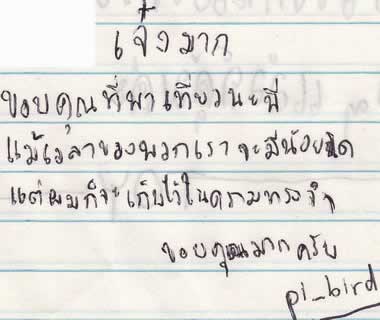 เจ๋งมาก
ขอบคุณที่พาเที่ยวนะพี่
แม้เวลาของพวกเราจะมีน้อยนิด
แต่ผมก็จะเก็บไว้ในความทรงจำ
ขอบคุณมากครับ
pi_bird